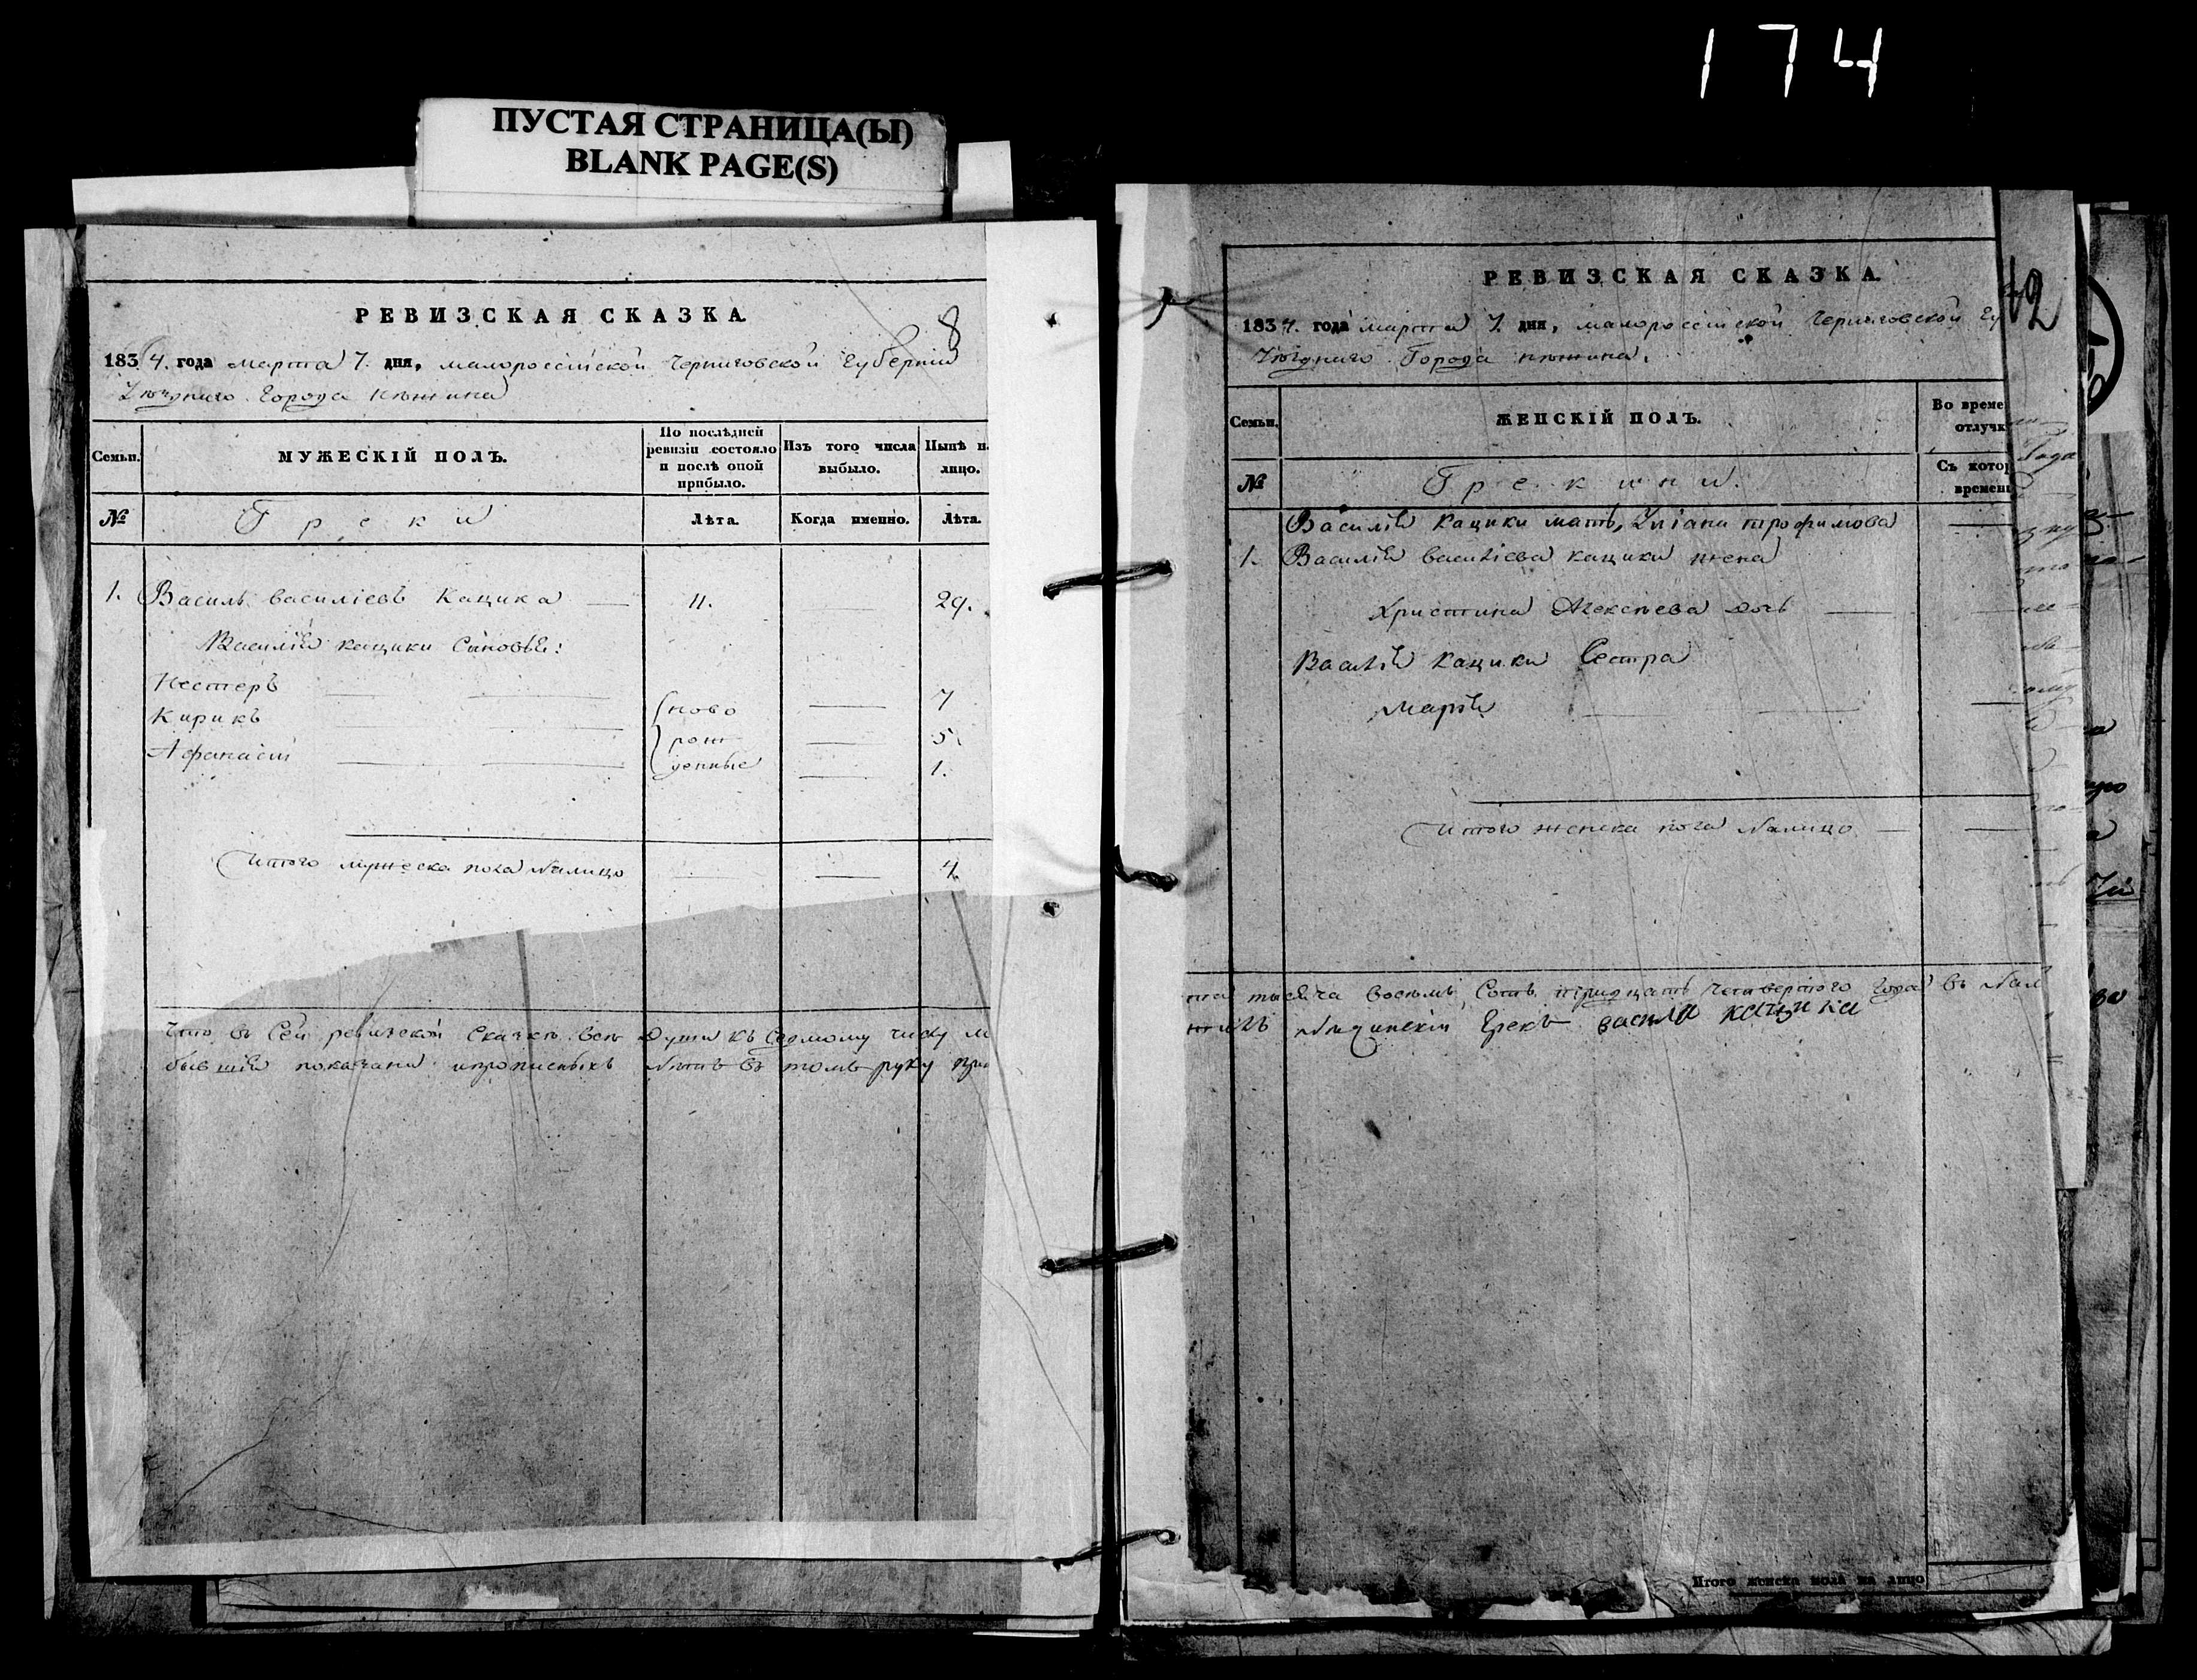 174
ПУСТАЯ СТРАНИЦА(Ы)
BLANK PAGE(S)
РЕВИЗСКАЯ СКАЗКА.
8
1834. года марта 7. дня, малороссійской Черниговской Губерніи
Уѣзднаго Города Нѣжина
Семьи.
МУЖЕСКІЙ ПОЛЪ.
По послѣдней ревизіи состояло и послѣ оной прибыло.
Изъ того числа выбыло.
Нынѣ н. лицо.
№
Греки
Лѣта.
Когда именно.
Лѣта.
1. Василь Василіевъ Кацика — 11. — 29.
Василія Кацики Сыновья:
Нестеръ — — ново — 7
Кирикъ — — рож — 5.
Афанасій — — денные — 1.
Итого мужеска пола Налицо — — 4.
Что въ Сей ревизской Сказке все Души къ Седмому числу м
бывшія показани
въ томъ руку
РЕВИЗСКАЯ СКАЗКА.
42
1834. года марта 7. дня, малороссійской Черниговской Гу
Уѣзднаго Города Нѣжина.
Семьи.
ЖЕНСКІЙ ПОЛЪ.
Во време
отлучк
№
Грекини.
Съ котор
времени
Василія Кацики мать, Уліана трофимова —
1. Василія Василіева Кацики жена
Христина Алексѣева дочь — —
Василія Кацики Сестра
Марія — — —
Итого женска пола Налицо — —
тысяча восемь Сотъ тридцать четвертого Года въ
Нѣжинскій Грекъ василй кацика
Итого женска пола на лицо